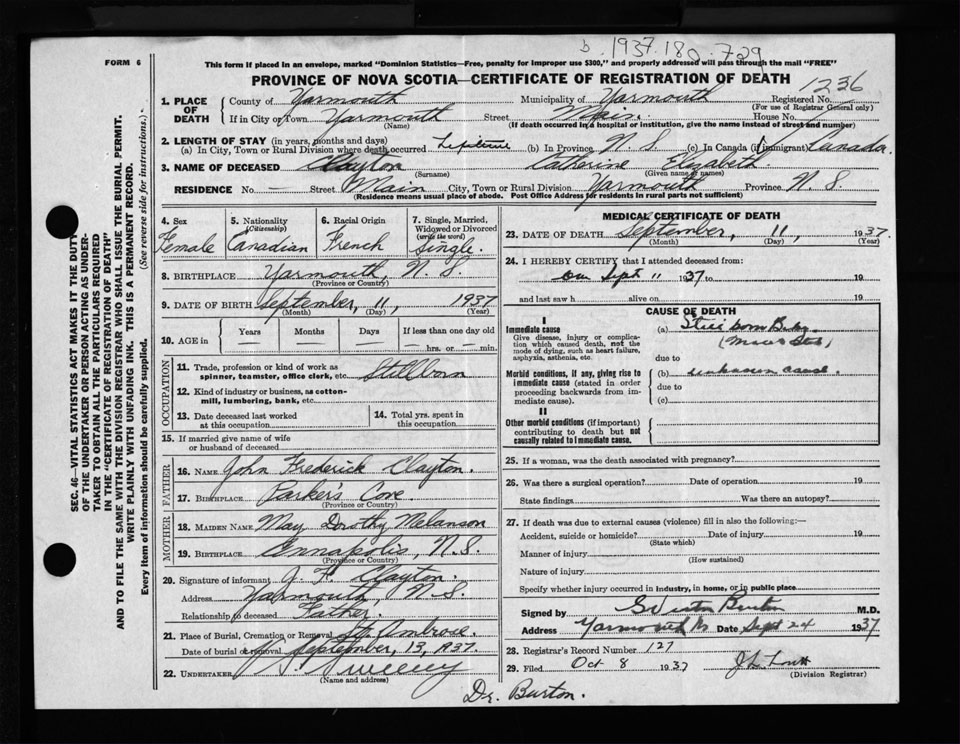 b. 1937.180.729
FORM 6
This form if placed in an envelope, marked "Dominion Statistics—Free, penalty for improper use $300," and properly addressed will pass through the mail "FREE"
PROVINCE OF NOVA SCOTIA—CERTIFICATE OF REGISTRATION OF DEATH
1236
1. PLACE OF DEATH County of Yarmouth Municipality of Yarmouth Registered No.
(For use of Registrar General only)
If in City or Town Yarmouth Street Main House No.
(Name) (If death occurred in a hospital or institution, give the name instead of street and number)
2. LENGTH OF STAY (in years, months and days)
(a) In City, Town or Rural Division where death occurred Lifetime (b) In Province N. S. (c) In Canada (if immigrant) Canada
3. NAME OF DECEASED Clayton Catherine Elizabeth
(Surname) (Given name or names)
RESIDENCE No. — Street Main City, Town or Rural Division Yarmouth Province N. S.
(Residence means usual place of abode. Post Office Address for residents in rural parts not sufficient)
4. Sex 5. Nationality (Citizenship) 6. Racial Origin 7. Single, Married, Widowed or Divorced (write the word)
Female Canadian French Single.
8. BIRTHPLACE Yarmouth, N. S.
(Province or Country)
9. DATE OF BIRTH September, 11, 1937
(Month) (Day) (Year)
10. AGE in Years Months Days If less than one day old
— — — — hrs. or — min.
OCCUPATION
11. Trade, profession or kind of work as spinner, teamster, office clerk, etc. Stillborn
12. Kind of industry or business, as cotton-mill, lumbering, bank, etc.
13. Date deceased last worked at this occupation
14. Total yrs. spent in this occupation
15. If married give name of wife or husband of deceased
FATHER
16. NAME John Frederick Clayton.
17. BIRTHPLACE Parker's Cove
(Province or Country)
MOTHER
18. MAIDEN NAME May Dorothy Melanson
19. BIRTHPLACE Annapolis, N. S.
(Province or Country)
20. Signature of informant J. F. Clayton.
Address Yarmouth N. S.
Relationship to deceased Father.
21. Place of Burial, Cremation or Removal St. Ambrose
Date of burial or removal September, 13, 1937.
22. UNDERTAKER V. S. Sweeny
(Name and address)
MEDICAL CERTIFICATE OF DEATH
23. DATE OF DEATH September, 11, 1937.
(Month) (Day) (Year)
24. I HEREBY CERTIFY that I attended deceased from:
on Sept 11 1937 to 19
and last saw h alive on 19
CAUSE OF DEATH
I
Immediate cause
Give disease, injury or complication which caused death, not the mode of dying, such as heart failure, asphyxia, asthenia, etc.
(a) Still born Baby
due to
Morbid conditions, if any, giving rise to immediate cause (stated in order proceeding backwards from immediate cause).
(b) unknown cause
due to
(c)
II
Other morbid conditions (if important) contributing to death but not causally related to immediate cause.
25. If a woman, was the death associated with pregnancy?
26. Was there a surgical operation? Date of operation 19
State findings Was there an autopsy?
27. If death was due to external causes (violence) fill in also the following:—
Accident, suicide or homicide? Date of injury 19
(State which)
Manner of injury
(How sustained)
Nature of injury
Specify whether injury occurred in industry, in home, or in public place
Signed by Burton M.D.
Address Yarmouth NS Date Sept 24 1937
28. Registrar's Record Number 127
29. Filed Oct 8 1937
(Division Registrar)
Dr. Burton.
SEC. 46—VITAL STATISTICS ACT MAKES IT THE DUTY
OF THE UNDERTAKER OR PERSON ACTING AS UNDER-
TAKER TO OBTAIN ALL THE PARTICULARS REQUIRED
IN THE "CERTIFICATE OF REGISTRATION OF DEATH"
AND TO FILE THE SAME WITH THE DIVISION REGISTRAR WHO SHALL ISSUE THE BURIAL PERMIT.
WRITE PLAINLY WITH UNFADING INK. THIS IS A PERMANENT RECORD.
Every item of information should be carefully supplied. (See reverse side for instructions.)